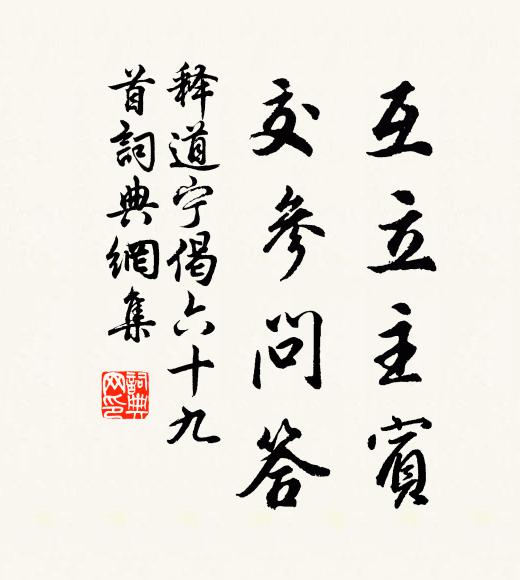 互立主賓
交參問答
释道宁偈六十九
首詞典網集
詞典
网印